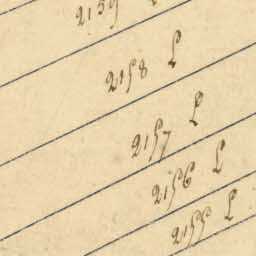 2159 L
2158 L
2157 L
2156 L
2155 L